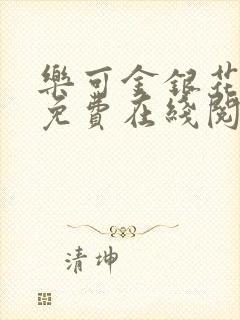 樂可金銀花
免費在綫閱
清坤